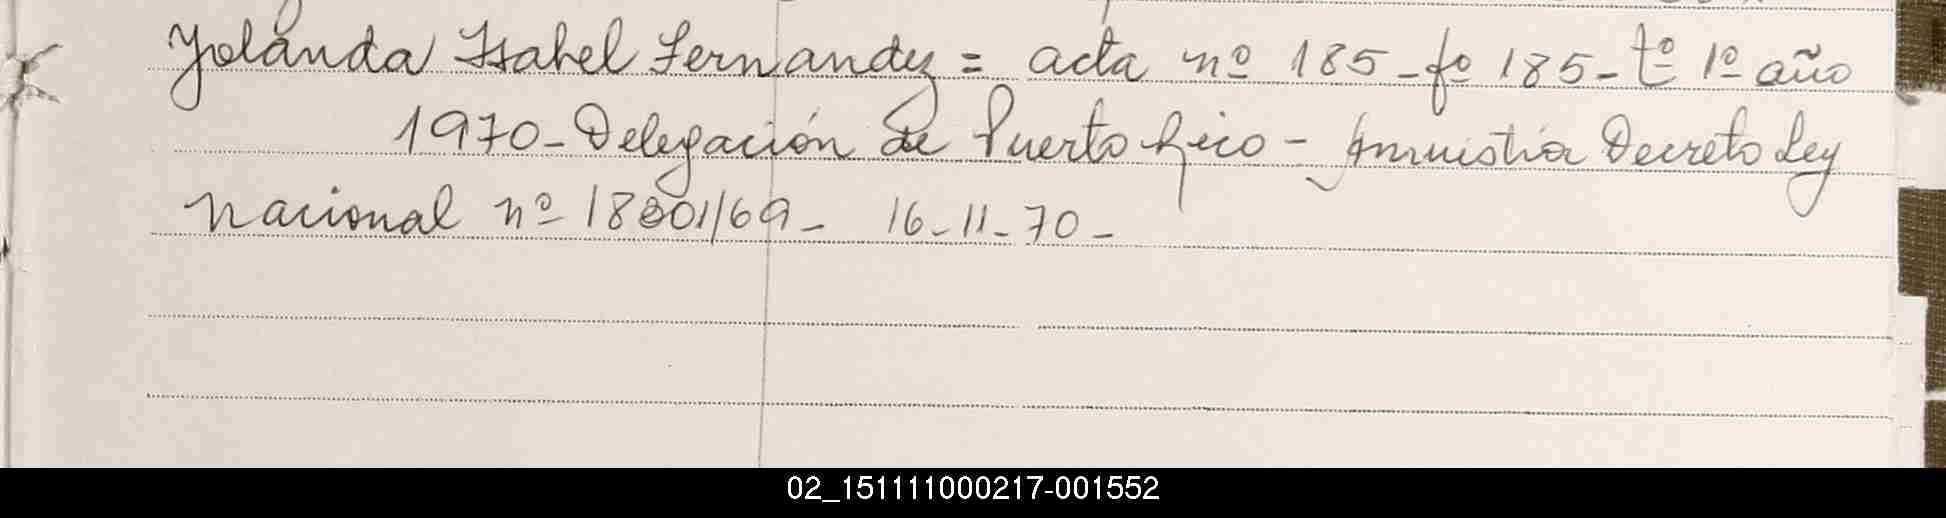 Yolanda Isabel Fernandez = acta nº 185 - fº 185 - tº 1º año
1970 - Delegación de Puerto Rico - Amnistía Decreto Ley
nacional nº 18001/69 - 16-11-70 -
02_151111000217-001552